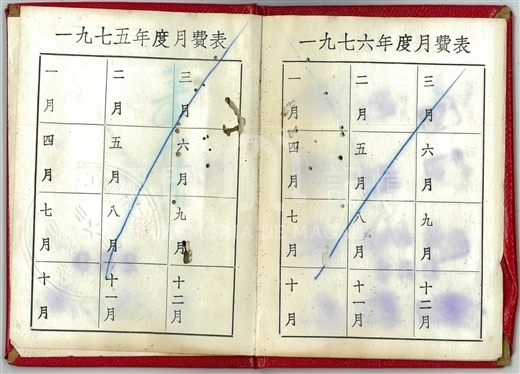 一九七五年度月費表
一月 二月 三月
四月 五月 六月
七月 八月 九月
十月 十一月 十二月
一九七六年度月費表
一月 二月 三月
四月 五月 六月
七月 八月 九月
十月 十一月 十二月